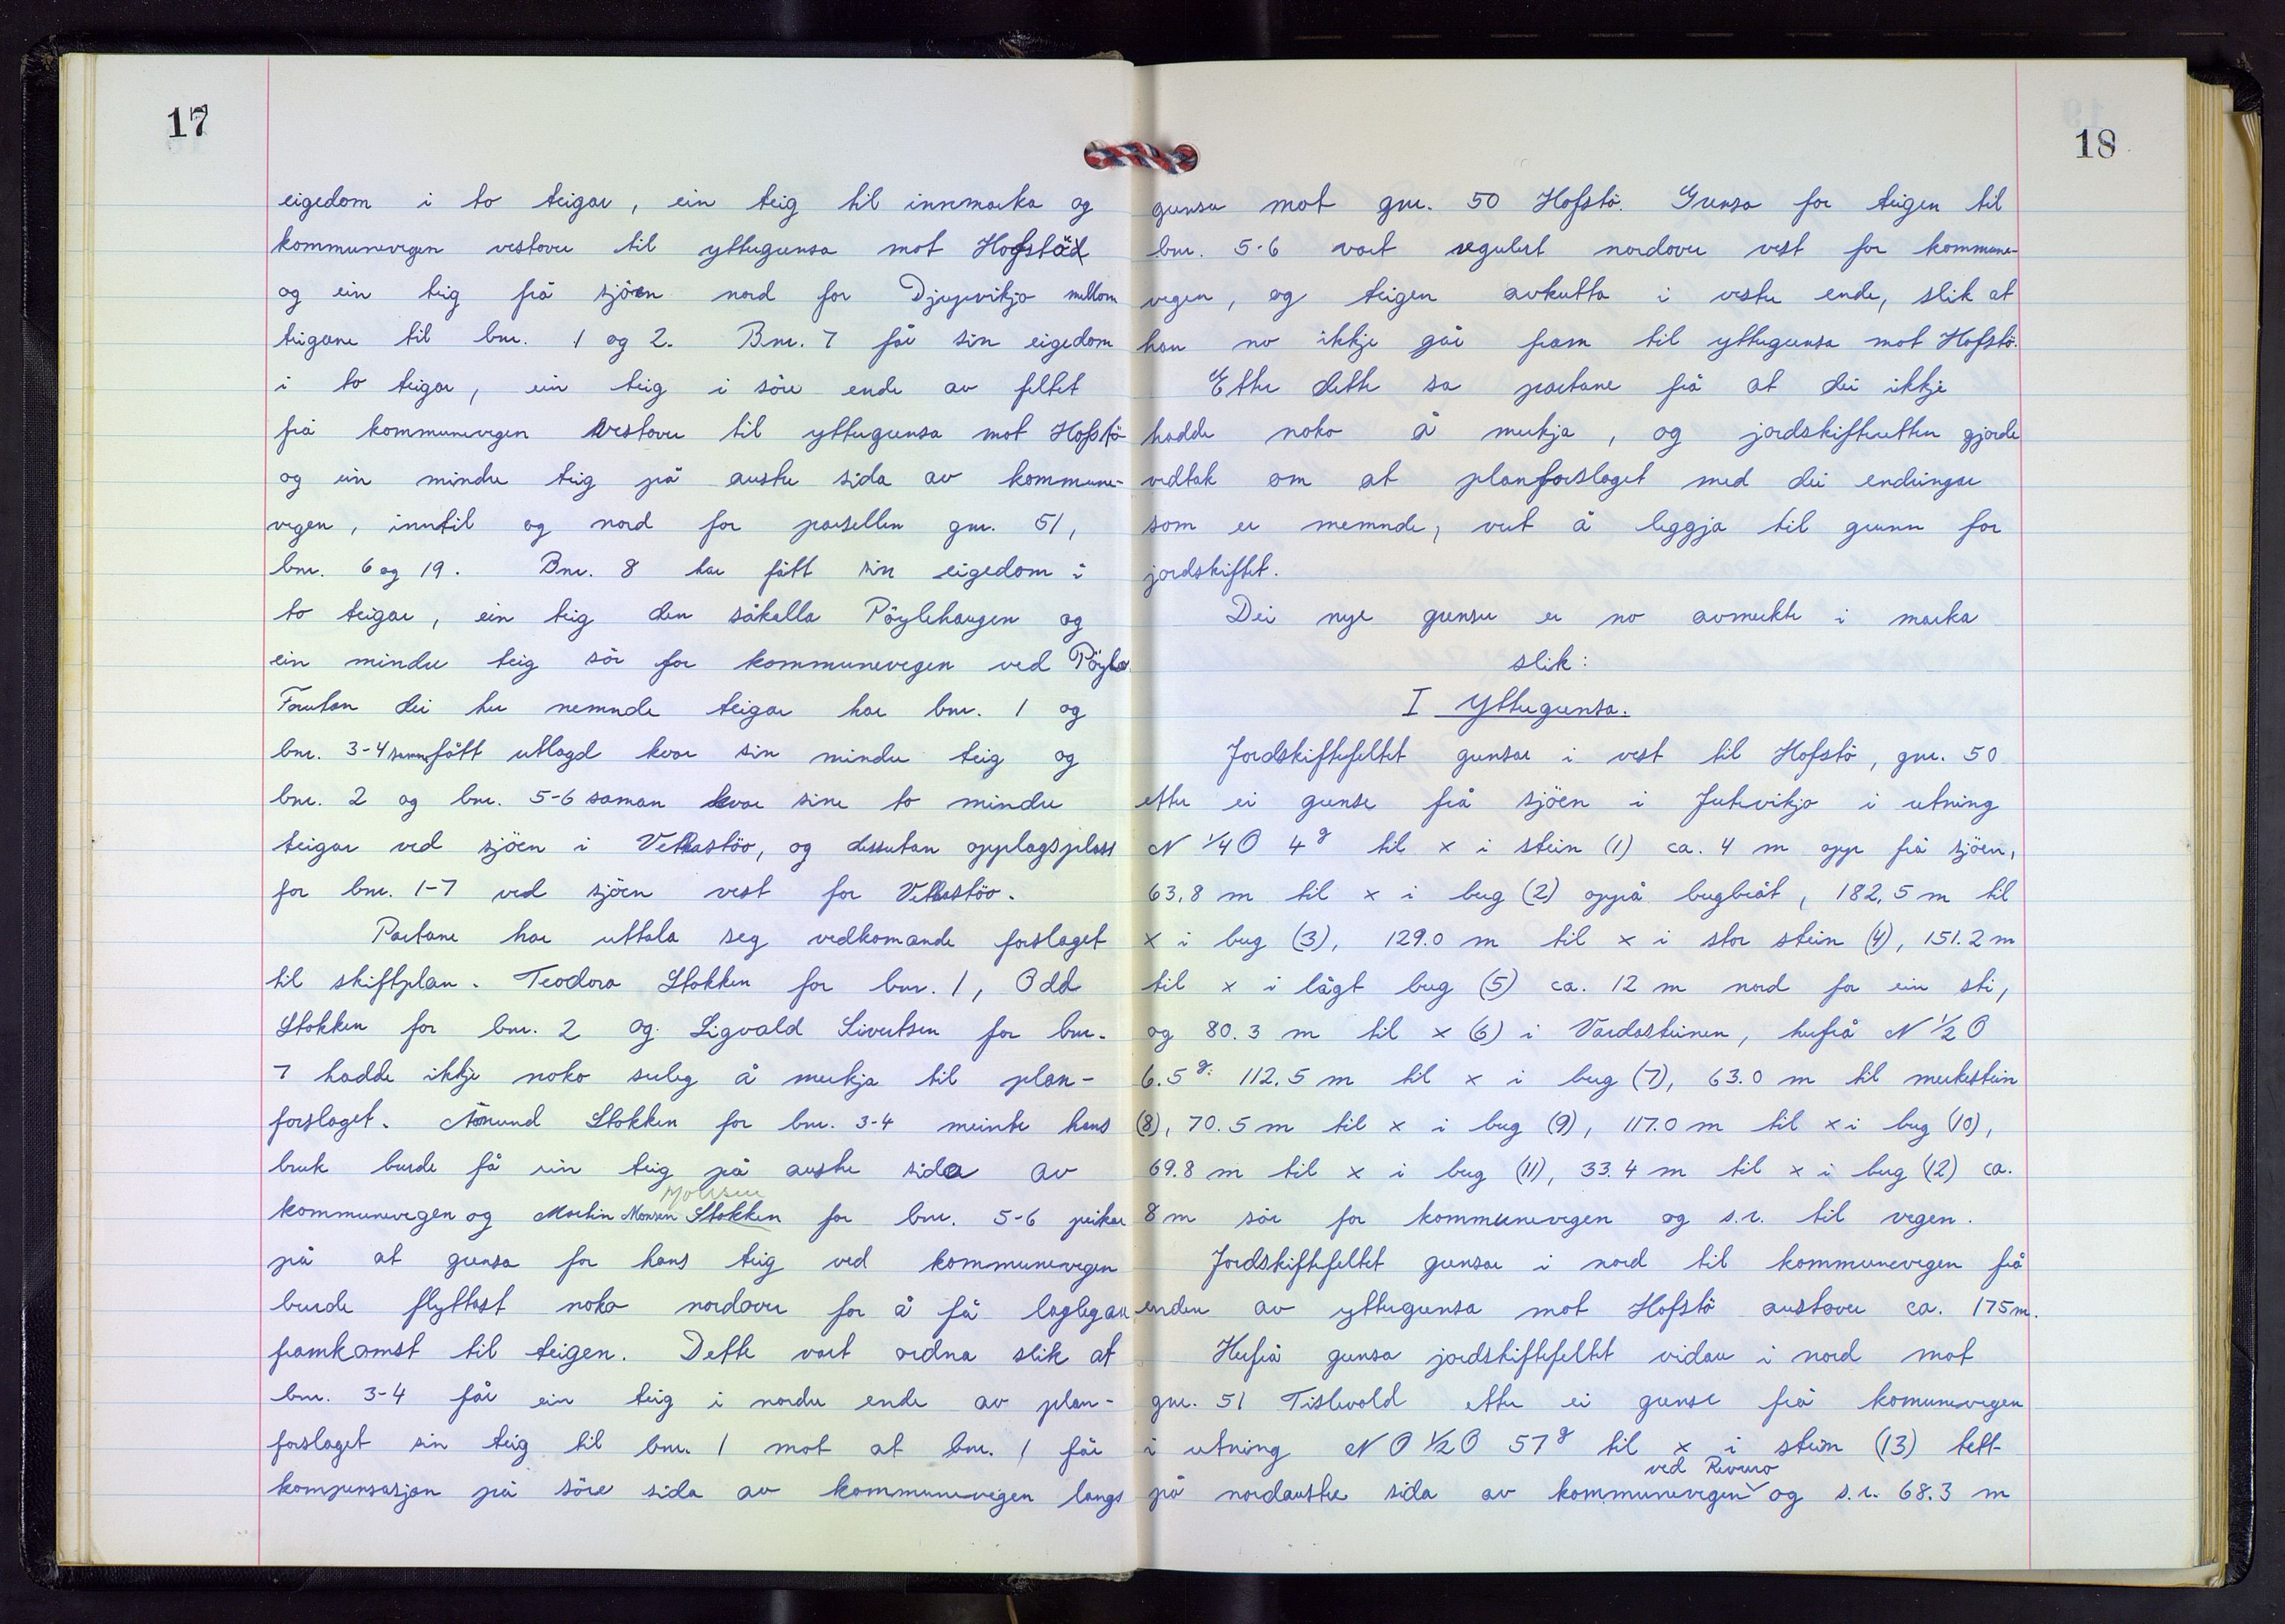 17
eigedom i to teigar, ein teig til innmarka og
kommunevegen vestover til yttergrensa mot Hofstød
og ein teig frå sjöen nord for Djupevikjo mellom
teigane til bnr. 1 og 2. Bnr. 7 får sin eigedom
i to teigar, ein teig i söre ende av feltet
frå kommunevegen vestover til yttergrensa mot Hofstö
og ein mindre teig på austre sida av kommune-
vegen, inntil og nord for parsellen gnr. 51,
bnr. 6 og 19. Bnr. 8 har fått sin eigedom i
to teigar, ein teig den såkalla Pöylehaugen og
ein mindre teig sör for kommunevegen ved Pöyla.
Forutan dei her nemnde teigar har bnr. 1 og
bnr. 3-4 saman fått utlagd kvar sin mindre teig og
bnr. 2 og bnr. 5-6 saman kvar sine to mindre
teigar ved sjöen i Vetrastöo, og dessutan opplagsplass
for bnr. 1-7 ved sjöen vest for Vetrastöo.
Partane har uttala seg vedkomande forslaget
til skiftplan. Teodora Stokken for bnr. 1, Odd
Stokken for bnr. 2 og Sigvald Sivertsen for bnr.
7 hadde ikkje noko serleg å merkja til plan-
forslaget. Åmund Stokken for bnr. 3-4 meinte hans
bruk burde få ein teig på austre sida av
kommunevegen og Martin Monsen Stokken for bnr. 5-6 peikar
på at grensa for hans teig ved kommunevegen
burde flyttast noko nordover for å få laglegare
framkomst til teigen. Dette vart ordna slik at
bnr. 3-4 får ein teig i nordre ende av plan-
forslaget sin teig til bnr. 1 mot at bnr. 1 får
kompensasjon på söre sida av kommunevegen langs
18
grensa mot gnr. 50 Hofstö. Grensa for teigen til
bnr. 5-6 vart regulert nordover vest for kommune-
vegen, og teigen avkutta i vestre ende, slik at
han no ikkje går fram til yttergrensa mot Hofstö.
Etter dette sa partane frå at dei ikkje
hadde noko å merkja, og jordskifteretten gjorde
vedtak om at planforslaget med dei endringar
som er nemnde, vert å leggja til grunn for
jordskiftet.
Dei nye grenser er no avmerkte i marka
slik:
I Yttergrensa.
Jordskiftefeltet grensar i vest til Hofstö, gnr. 50
etter ei grense frå sjöen i Jutevikjo i retning
N 1/4 O 4g til x i stein (1) ca. 4 m opp frå sjöen,
63,8 m til x i berg (2) oppå bergbråt, 182,5 m til
x i berg (3), 129.0 m til x i stor stein (4), 151.2 m
til x i lågt berg (5) ca. 12 m nord for ein sti,
og 80.3 m til x (6) i Vardasteinen, herfrå N 1/2 O
6.5g: 112.5 m til x i berg (7), 63.0 m til merkestein
(8), 70.5 m til x i berg (9), 117.0 m til x i berg (10),
69.8 m til x i berg (11), 33.4 m til x i berg (12) ca.
8 m sör for kommunevegen og s.r. til vegen.
Jordskiftefeltet grensar i nord til kommunevegen frå
enden av yttergrensa mot Hofstö austover ca. 175 m.
Herfrå grensa jordskiftefeltet vidare i nord mot
gnr. 51 Tislevold etter ei grense frå komunevegen
i retning N O 1/2 O 57g til x i stein (13) tett
ved
på nordaustre sida av kommunevegen og s.r. 68.3 m